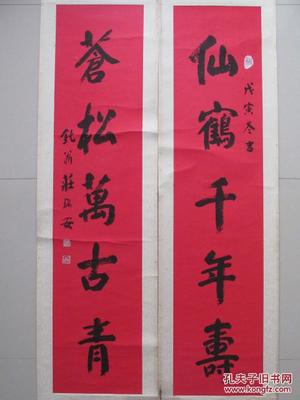 仙鶴千年壽
戊寅冬書
蒼松萬古青
鈍翁莊
安
孔夫子旧书网